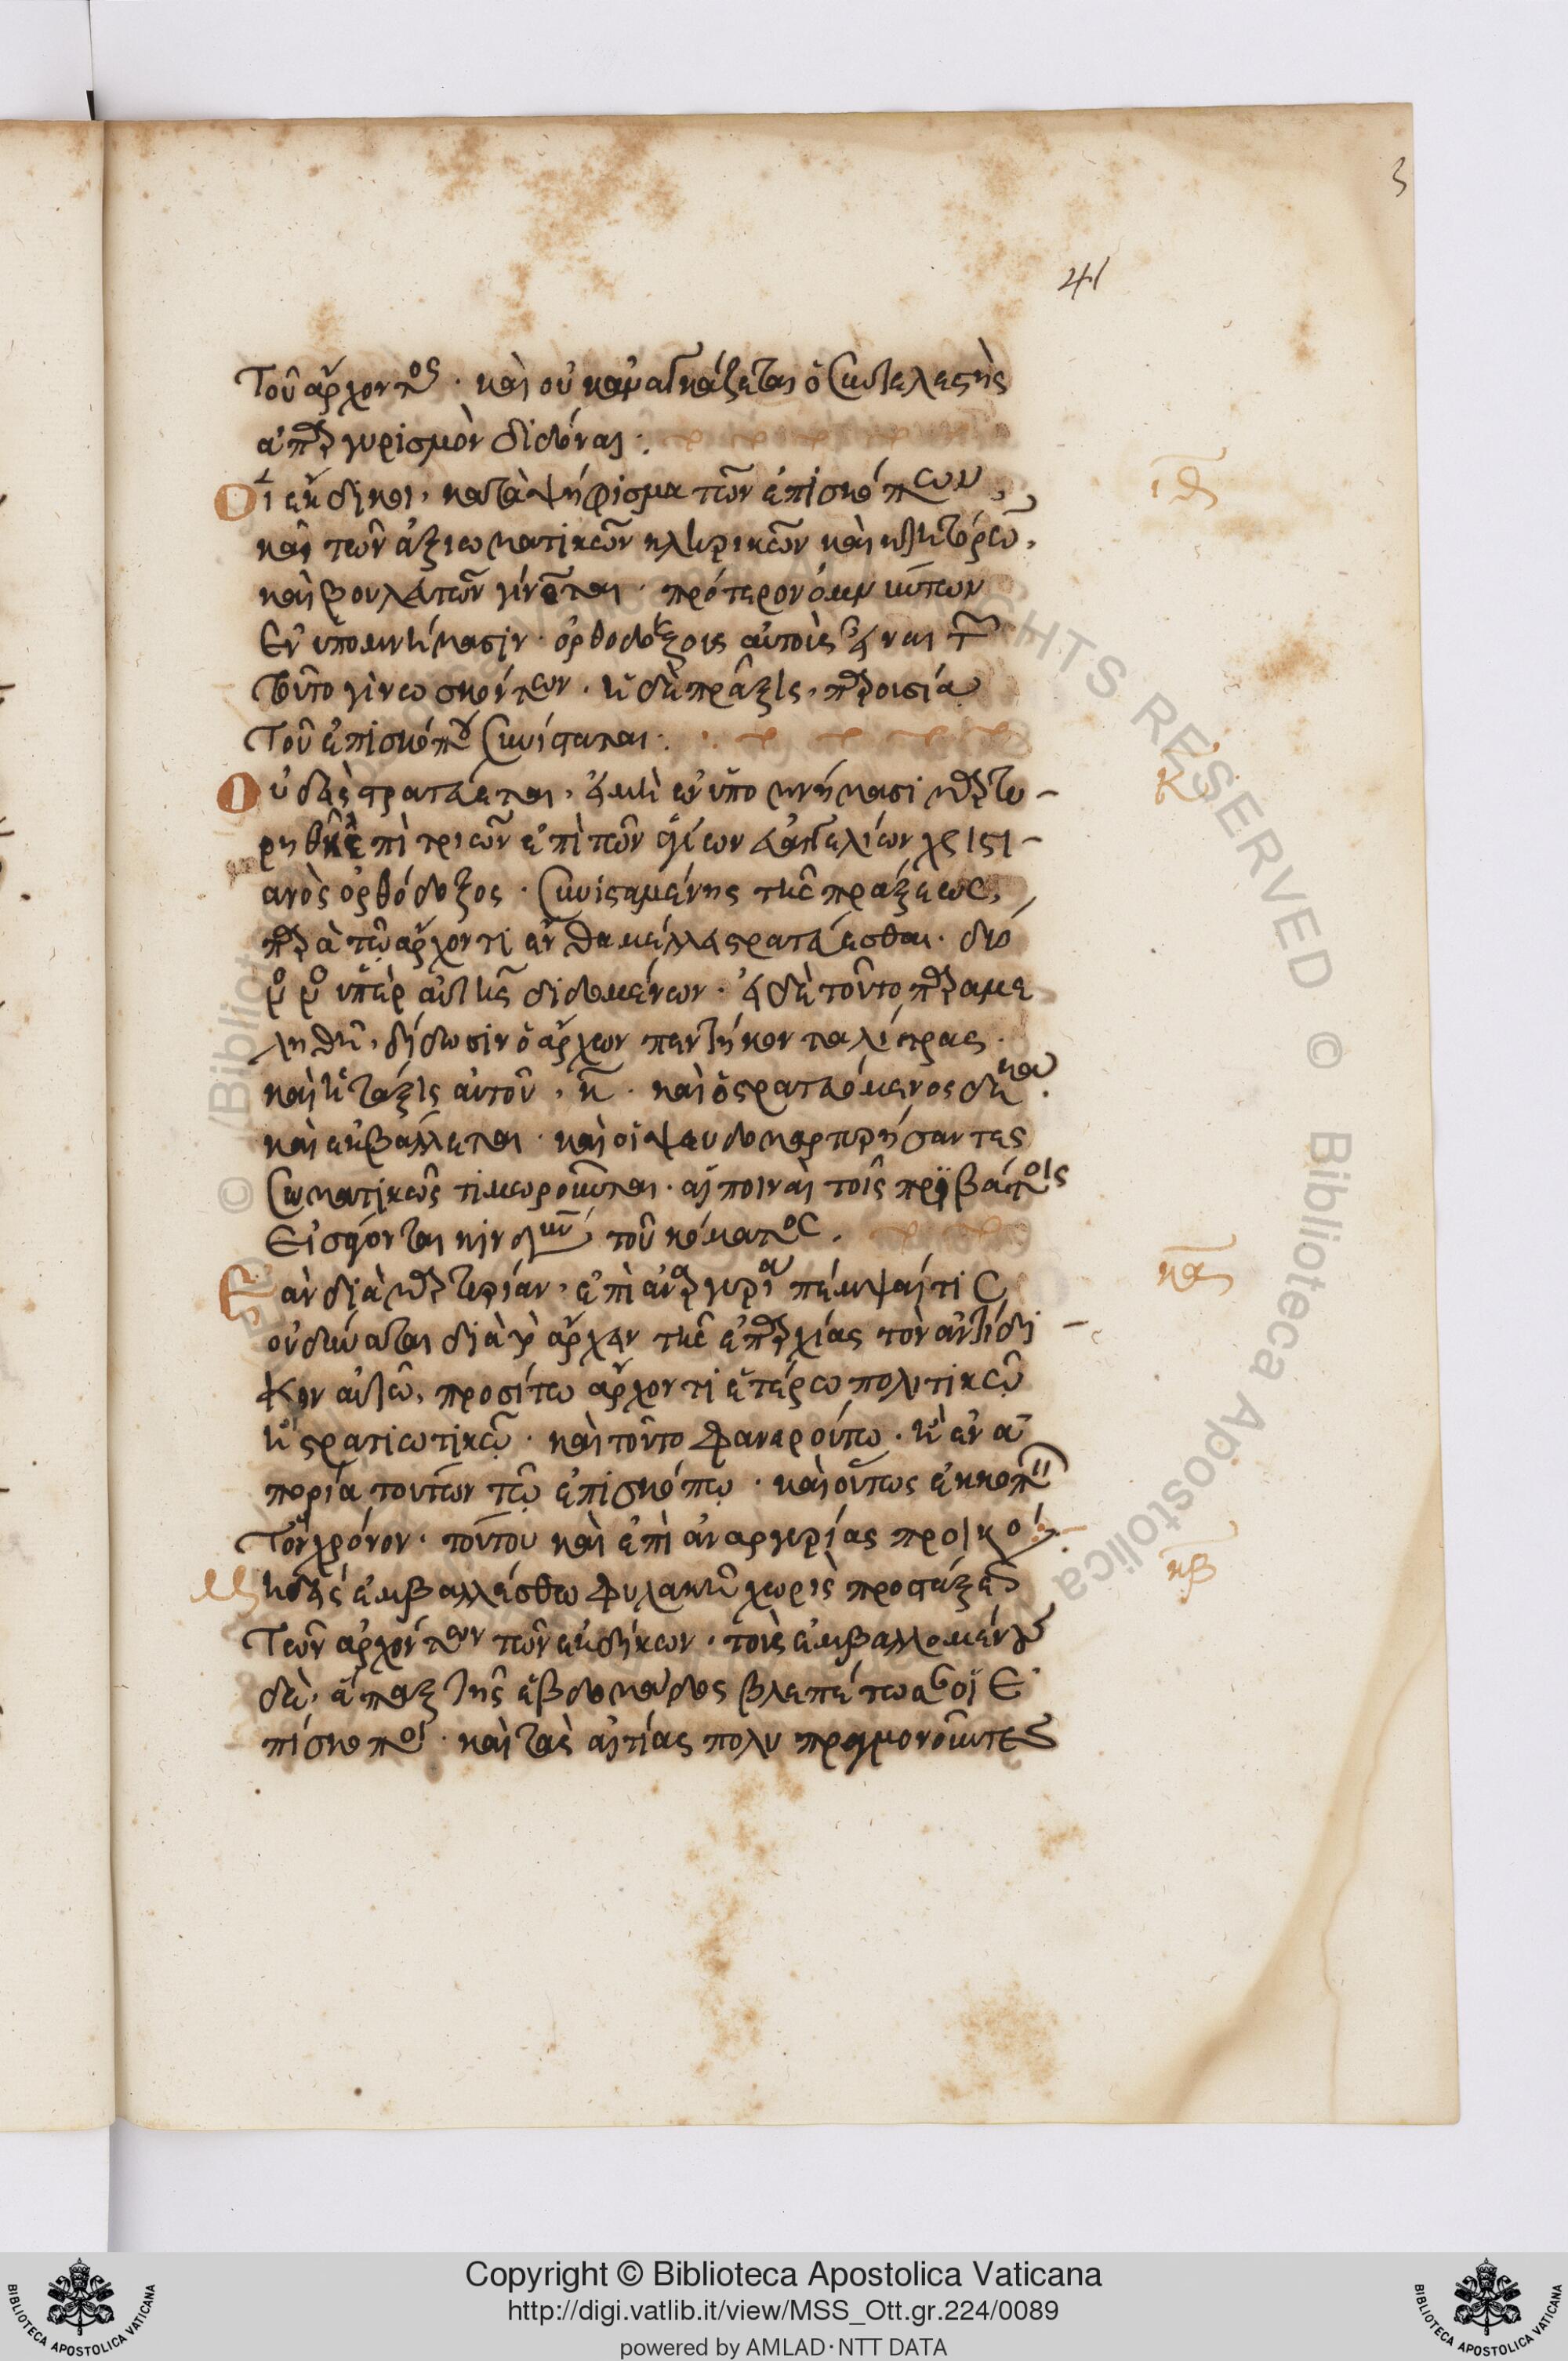 3
41
τοῦ ἄρχοντος · καὶ οὐκ ἀναγκάζεται ὁ συντελεστὴς
ἀπαργυρισμὸν διδόναι :
Οἱ ἔκδικοι, κατὰ ψήφισμα τῶν ἐπισκόπων,
ιθ
καὶ τῶν ἀξιωματικῶν κληρικῶν καὶ κτητόρων,
καὶ βουλευτῶν γίνονται · πρότερον ὀμνύντων
ἐν ὑπομνήμασιν · ὀρθοδόξοις αὐτοῖς εἶναι
τοῦτο γινωσκόντων · ἡ δὲ πρᾶξις, παρουσία
τοῦ ἐπισκόπου συνίσταται ·
Οὐδεὶς στρατεύεται, εἰ μὴ ἐν ὑπομνήμασι μαρτυ-
κ
ρηθῇ ἐπὶ τριῶν ἐπὶ τῶν ἁγίων εὐαγγελίων χριστι-
ανὸς ὀρθόδοξος · συνισταμένης τῆς πράξεως,
παρὰ τῷ ἄρχοντι ἔνθα μέλλει στρατεύεσθαι · δύο
νο νο ὑπὲρ αὐτῆς διδομένων · εἰ δὲ τοῦτο παραμε
ληθῇ, δίδωσιν ὁ ἄρχων πεντήκοντα λίτρας ·
καὶ ἡ τάξις αὐτοῦ, κ · καὶ ὁ στρατευόμενος δέκα ·
καὶ ἐκβάλλεται · καὶ οἱ ψευδομαρτυρήσαντες
σωματικῶς τιμωροῦνται · αἱ ποιναὶ τοῖς πριβάτοις
εἰσφέρονται κινδύνῳ τοῦ κόματος ·
Ἐὰν διὰ μαρτυρίαν, ἐπὶ ἀναργυρία πέμψαί τις
κα
οὐ δύναται διὰ τὸν ἄρχειν τῆς ἐπαρχίας τὸν ἀντίδι-
κον αὐτῶ, προσίτω ἄρχοντι ἑτέρω πολιτικῷ
ἢ στρατιωτικῷ · καὶ τοῦτο φανερούτω · ἢ ἐν ἀ
πορία τούτων τῷ ἐπισκόπῳ · καὶ οὕτως ἐκκοπτη
τὸν χρόνον · τούτου καὶ ἐπὶ ἀναργυρίας προικός
κβ
Μηδεὶς ἐμβαλλέσθω φυλακῇ χωρὶς προστάξεως
τῶν ἀρχόντων τῶν ἐκδίκων · τοὺς ἐμβαλλομένους
δὲ, ἅπαξ τῆς ἑβδομάδος βλεπέτωσαν οἱ ἐ
πίσκοποι · καὶ τὰς αἰτίας πολυπραγμονοῦντες
Copyright © Biblioteca Apostolica Vaticana
http://digi.vatlib.it/view/MSS_Ott.gr.224/0089
powered by AMLAD·NTT DATA
BIBLIOTECA APOSTOLICA VATICANA
BIBLIOTECA APOSTOLICA VATICANA